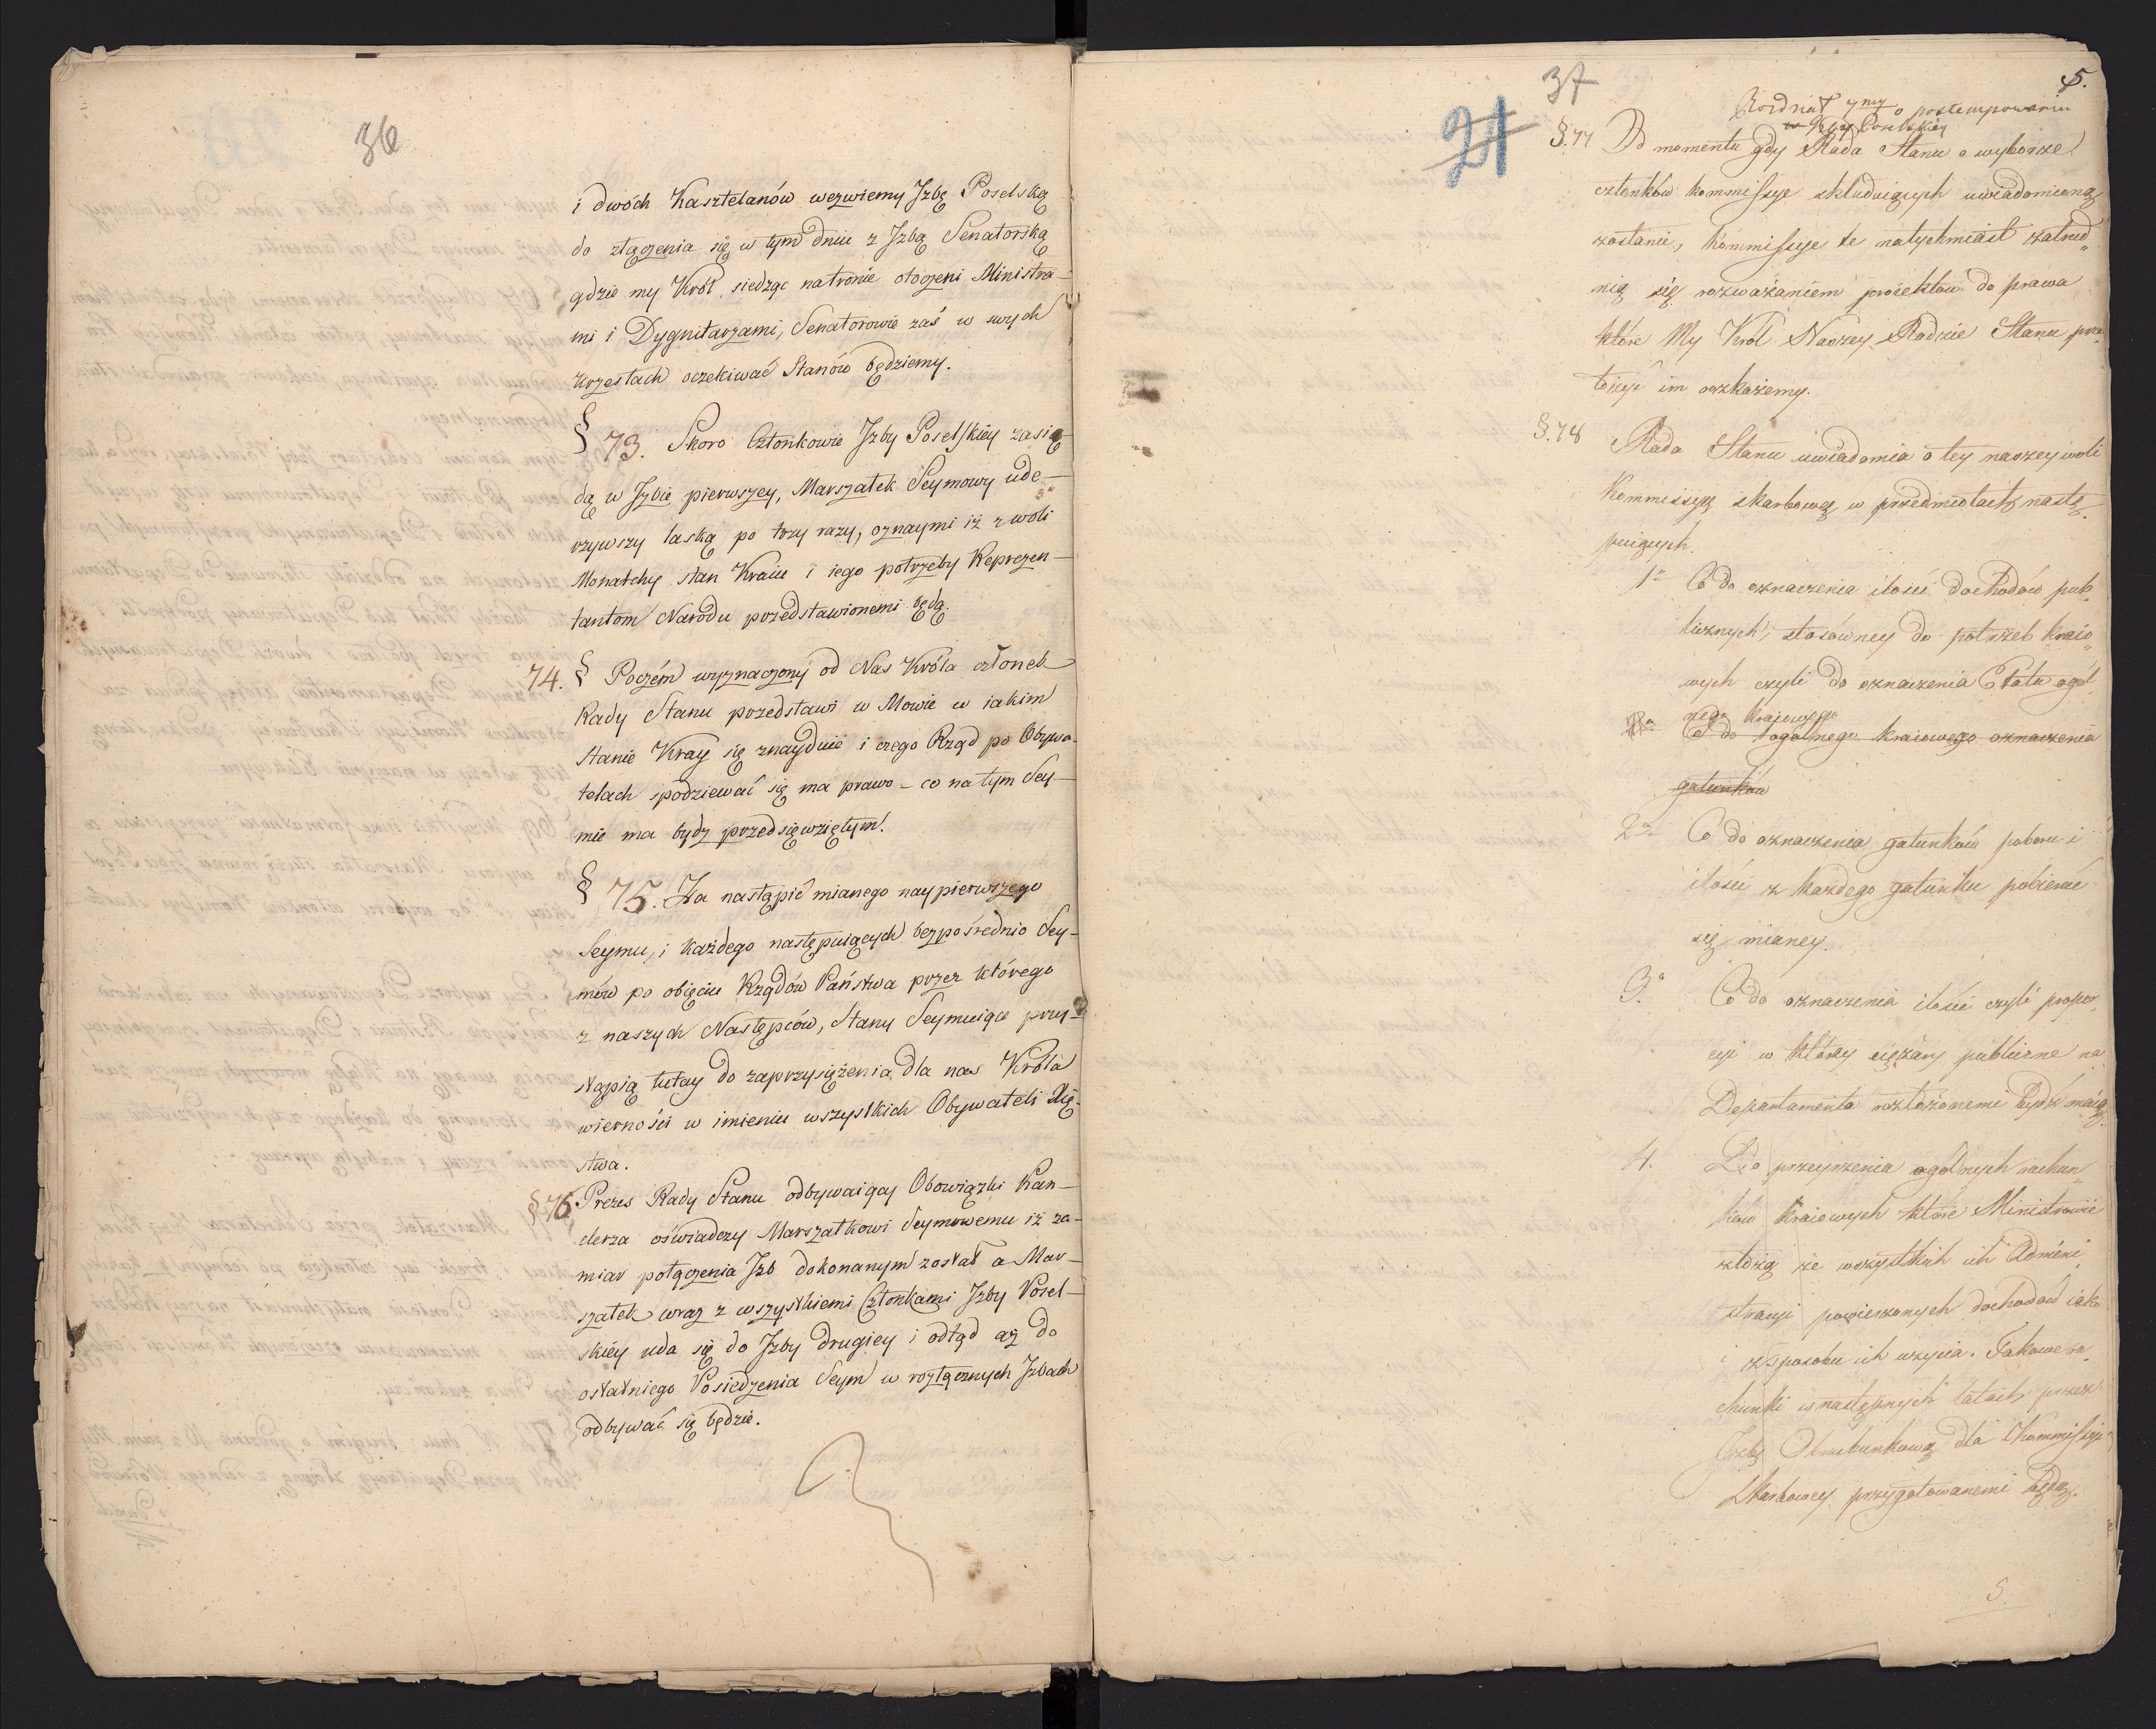 36
i dwóch Kasztelanów wezwiemy Jzbę Poselską
do złączenia się w tym dniu z Jzbą Senatorską
gdzie my Król siedząc na tronie otoczeni Ministra-
mi i Dygnitarzami, Senatorowie zaś w swych
krzesłach oczekiwać Stanów będziemy.
§ 73. Skoro Członkowie Jzby Poselskiey zasię-
dą w Jzbie pierwszey, Marszałek Seymowy ude-
rzywszy laską po trzy razy, oznaymi iż z woli
Monarchy stan Kraiu i iego potrzeby Reprezen-
tantom Narodu przedstawionemi będą.
74. § Poczém wyznaczony od Nas Króla członek
Rady Stanu przedstawi w Mowie w iakim
stanie Kray się znayduie i czego Rząd po Obywa-
telach spodziewać się ma prawo - co na tym Sey-
mie ma bydź przedsięwziętym.
§ 75. Za nastąpić mianego naypierwszego
Seymu, i każdego następuiących bezpośrednio Sey-
mów po obięciu Rządów Państwa przez którego
z naszych Następców, Stany Seymuiące przy-
stąpią tutay do zaprzysiężenia dla nas Króla
wierności w imieniu wszystkich Obywateli Xię-
stwa.
§ 76 Prezes Rady Stanu odbywaiący Obowiązki Kan-
clerza oświadczy Marszałkowi Seymowemu iż za-
miar połączenia Jzb dokonanym został a Mar-
szałek wraz z wszystkiemi Członkami Jzby Posel-
skiéy uda się do Jzby drugiey i odtąd aż do
ostatniego Posiedzenia Seym w rozłącznych Jzbach
odbywać się będzie.
37
5.
21
Rozdział 7my o postempowaniu
w Jzby Poselskiey
§.77 Od momentu gdy Rada Stanu o wyborze
członków kommissye składaiących uwiadomioną
zostanie, Kommissye te natychmiast zatrud„
nią się rozważaniem proiektów do prawa
które My Król Naszey Radzie Stanu prze„
łożyć im rozkażemy.
§.78 Rada Stanu uwiadomia o tey naszey woli
Kommissyę skarbową w przedmiotach nastę„
puiących.
1o Co do oznaczenia ilości dochodów pub„
licznych, stosówney do potrzeb kraio„
wych czyli do oznaczenia Etatu ogól„
nego krajowego
Co do ogólnego kraiowego oznaczenia
gatunków
2o Co do oznaczenia gatunków poboru i
ilości z każdego gatunku pobierać
się mianey.
3o Co do oznaczenia ilości czyli propor„
cyi w którey ciężary publiczne na
Departamenta rozłożonemi bydź maią.
4. Do przeyrzenia ogólnych rachun„
ków kraiowych które Ministrowie
złożą ze wszystkich ich Admini„
stracyi powierzonych dochodów iako
i z sposobu ich użycia. Takowe ra„
chunki w następnych latach przez
Jzbę Obrachunkową dla Kommissyi
Skarbowey przygotowanemi będą.
5.